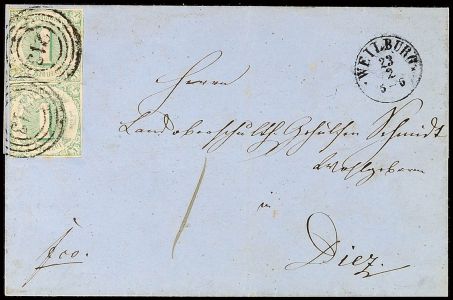 WEILBURG
23
2
5-6
Herrn
Landoberschulth. Gehülfen Schmidt
Wohlgeboren
in
Diez.
fco.
1